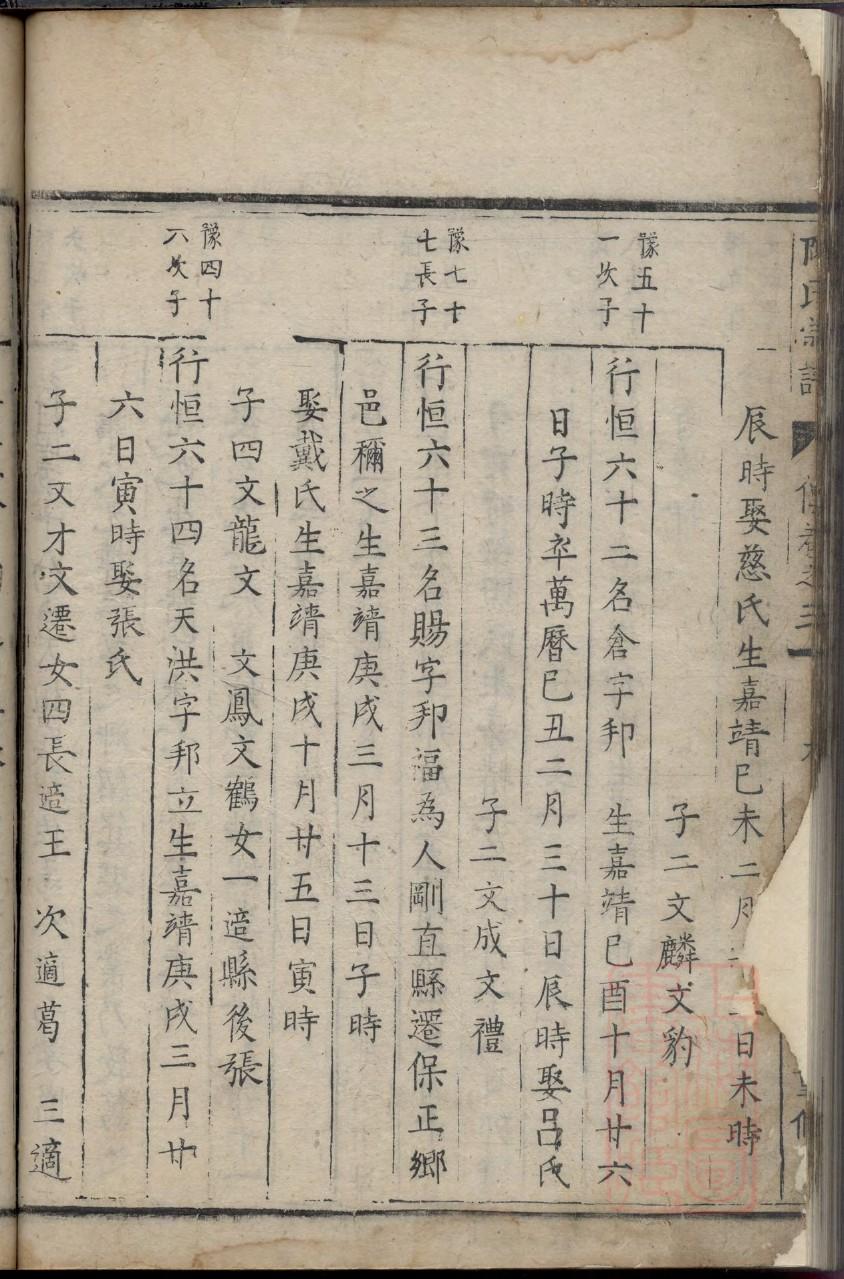 陳氏宗譜
卷之三
辰時娶慈氏生嘉靖己未二月 日未時
子二文麟文豹
豫五十
一次子
行恒六十二名倉字邦 生嘉靖己酉十月廿六
日子時卒萬曆己丑二月三十日辰時娶呂氏
子二文成文禮
豫七十
七長子
行恒六十三名賜字邦福為人剛直縣遷保正鄉
邑稱之生嘉靖庚戌三月十三日子時
娶戴氏生嘉靖庚戌十月廿五日寅時
子四文龍文 文鳳文鶴女一適縣後張
豫四十
六次子
行恒六十四名天洪字邦立生嘉靖庚戌三月廿
六日寅時娶張氏
子二文才文遷女四長適王 次適葛 三適